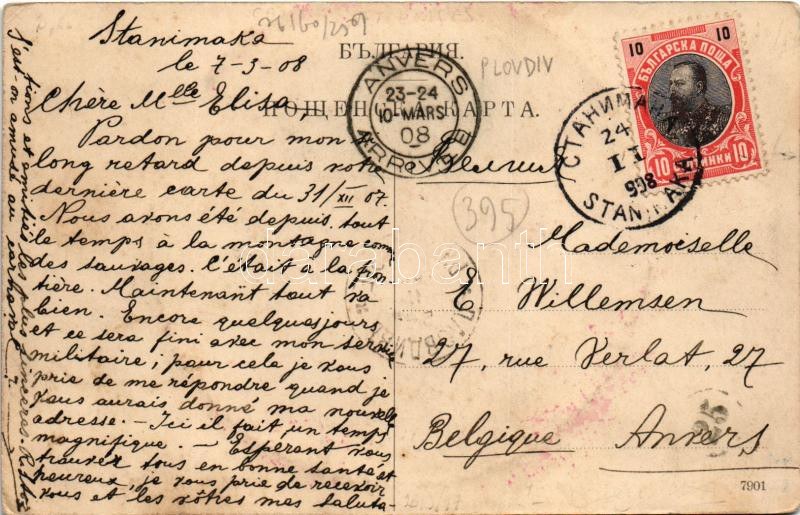 Stanimaka
le 7-3-08
Chère Mlle Elisa,
Pardon pour mon
long retard depuis votre
dernière carte du 31/XII 07.
Nous avons été depuis tout
le temps à la montagne comme
des sauvages. C'était à la fron
tière. Maintenant tout va
bien. Encore quelques jours
et ce sera fini avec mon service
militaire; pour cela je vous
prie de me répondre quand je
vous aurais donné ma nouvelle
adresse. — Ici il fait un temps
magnifique. — Espérant vous
trouver tous en bonne santé et
heureux, je vous prie de recevoir
vous et les vôtres mes saluta-
tions et amitiés les plus sincères.
PLOVDIV
БЪЛГАРИЯ.
КАРТА.
ANVERS
23-24
10 MARS
08
ARRIVÉE
10 10
БЪЛГАРСКА ПОЩА
10 10
СТАНИМАКА
24
II
908
STANIMAKA
Белгия
395
Mademoiselle
E Willemsen
27, rue Verlat, 27
Belgique Anvers
25
7901
darabanth